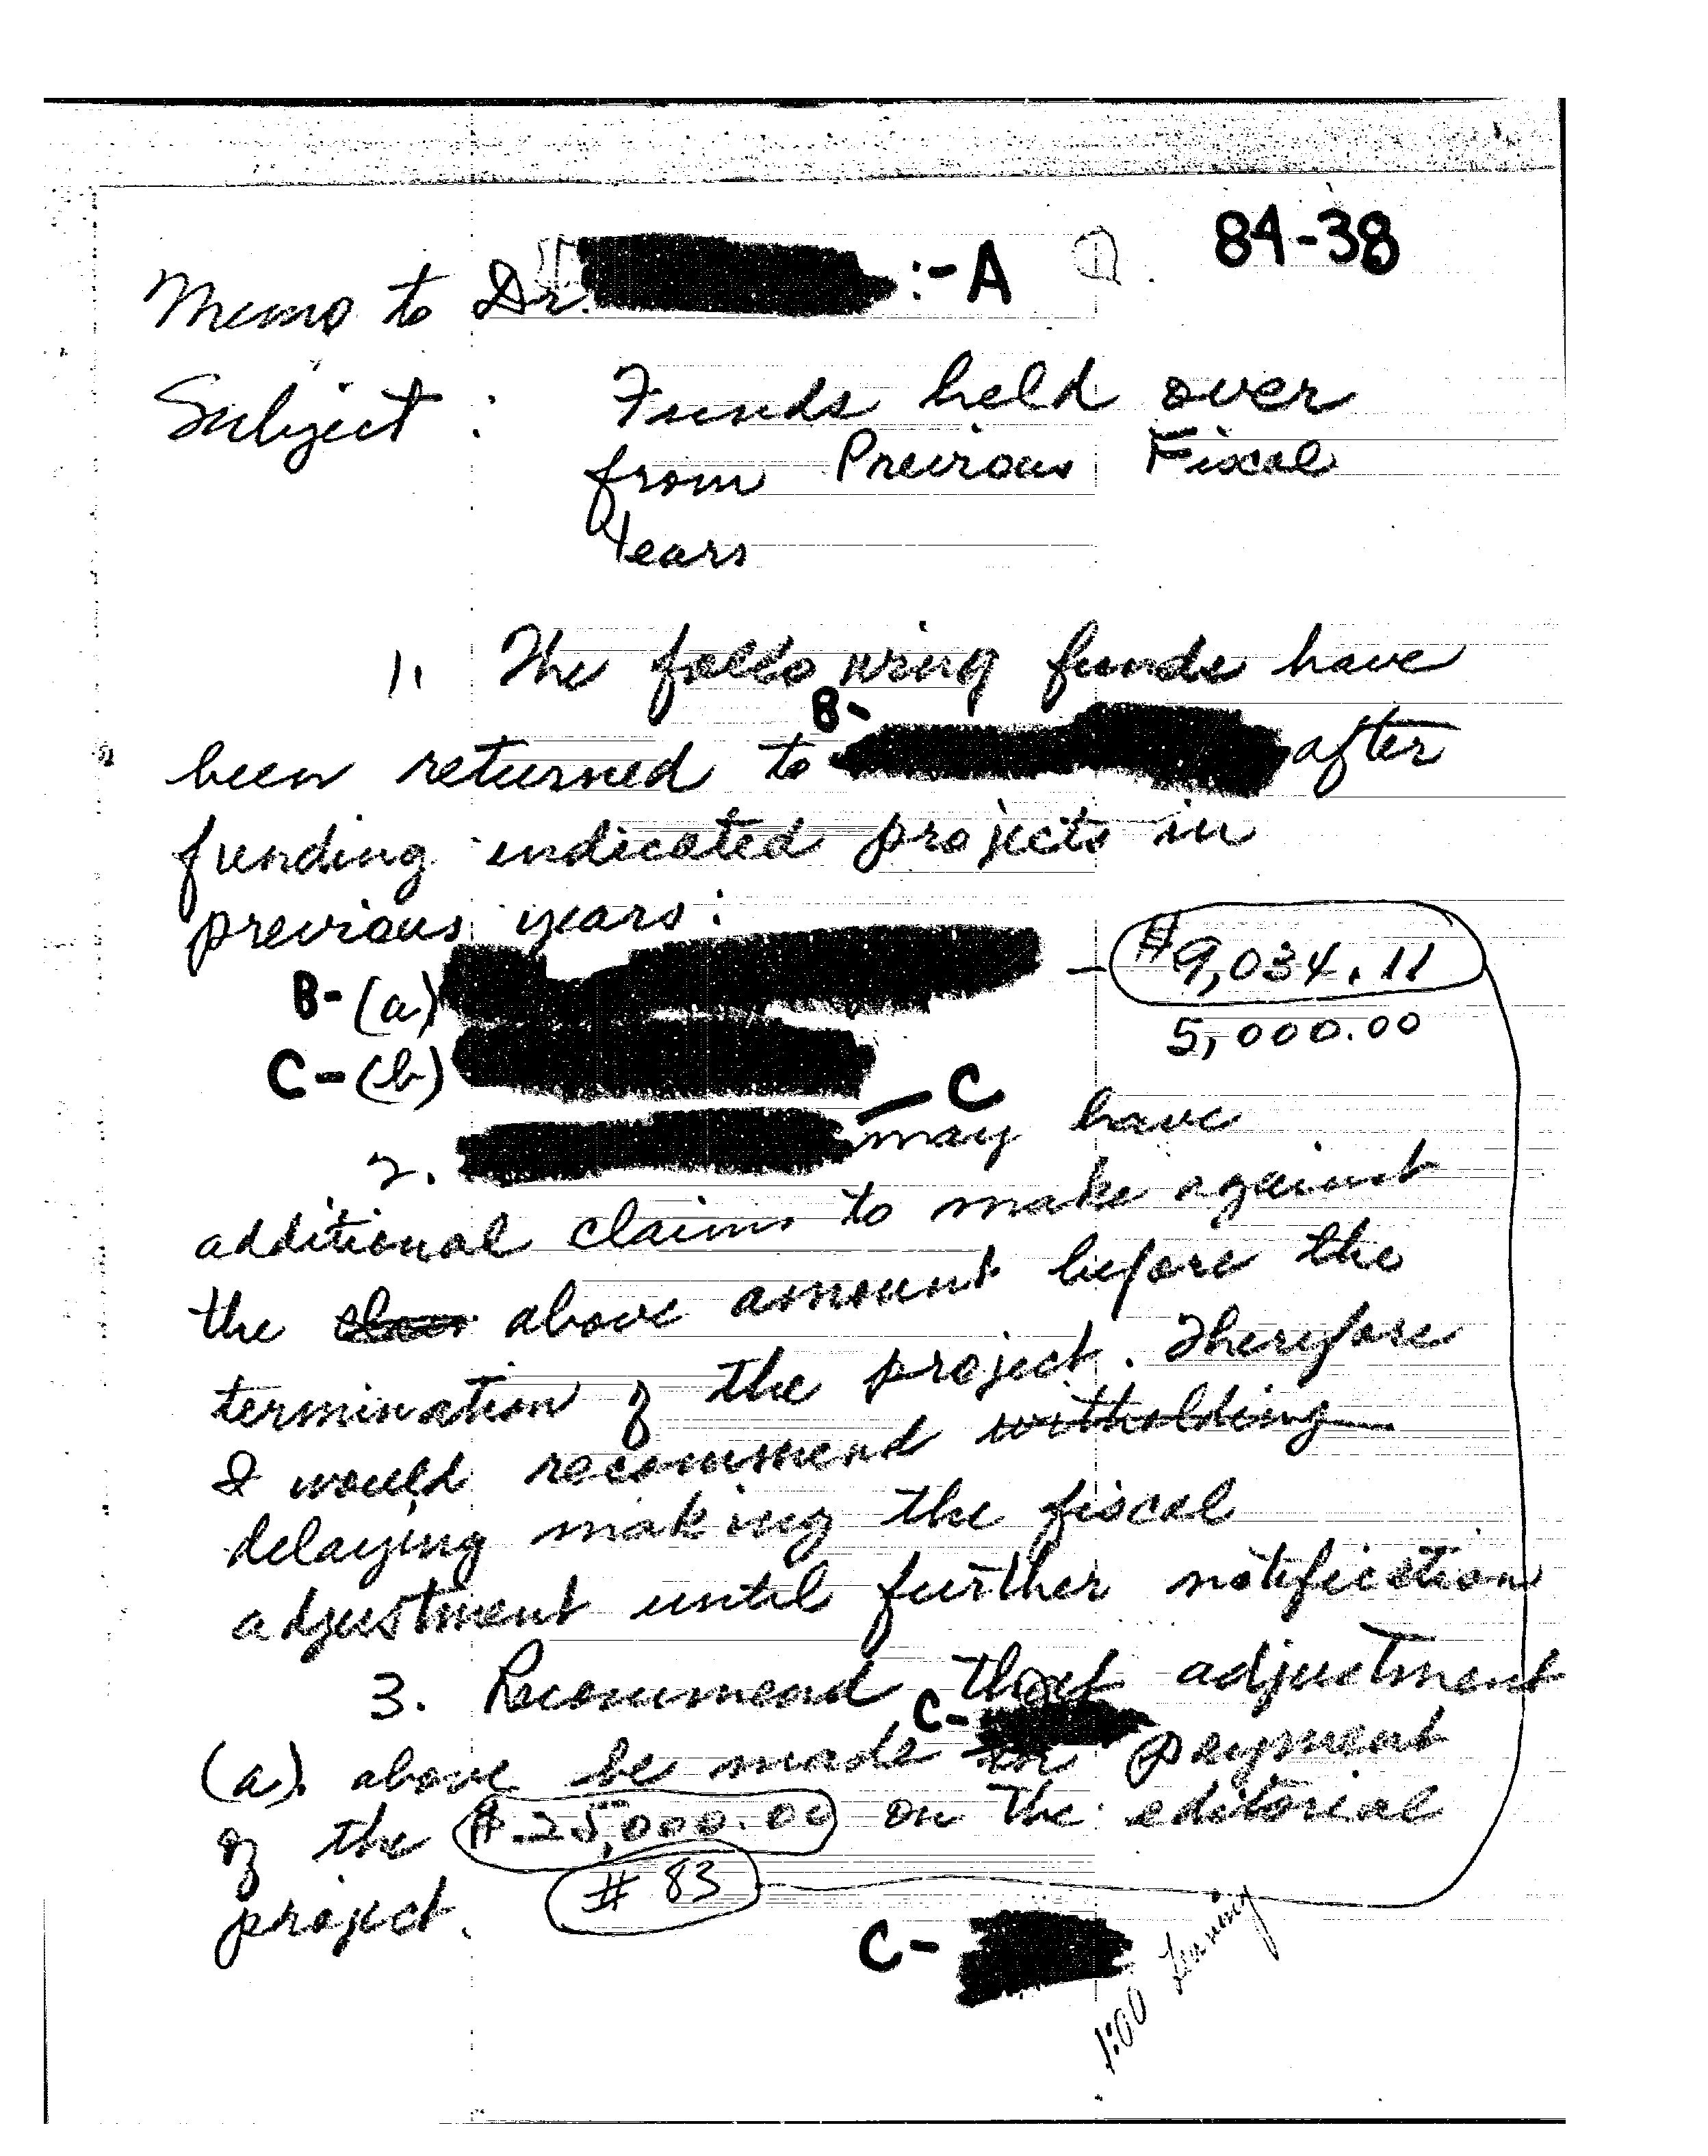 84-38
Memo to Dr. :-A
Subject : Funds held over
from Previous Fiscal
Years
1. The following funds have
B-
been returned to after
funding indicated projects in
previous years:
B-(a) — $9,034.11
5,000.00
C-(b)
— C
2. may have
additional claims to make against
the above amount before the
termination of the project. Therefore
I would recommend witholding
delaying making the fiscal
adjustment until further notification
3. Recommend that adjustment
C-
(a) above be made in payment
of the $25,000.00 on the editorial
project. # 83
C-
1:00